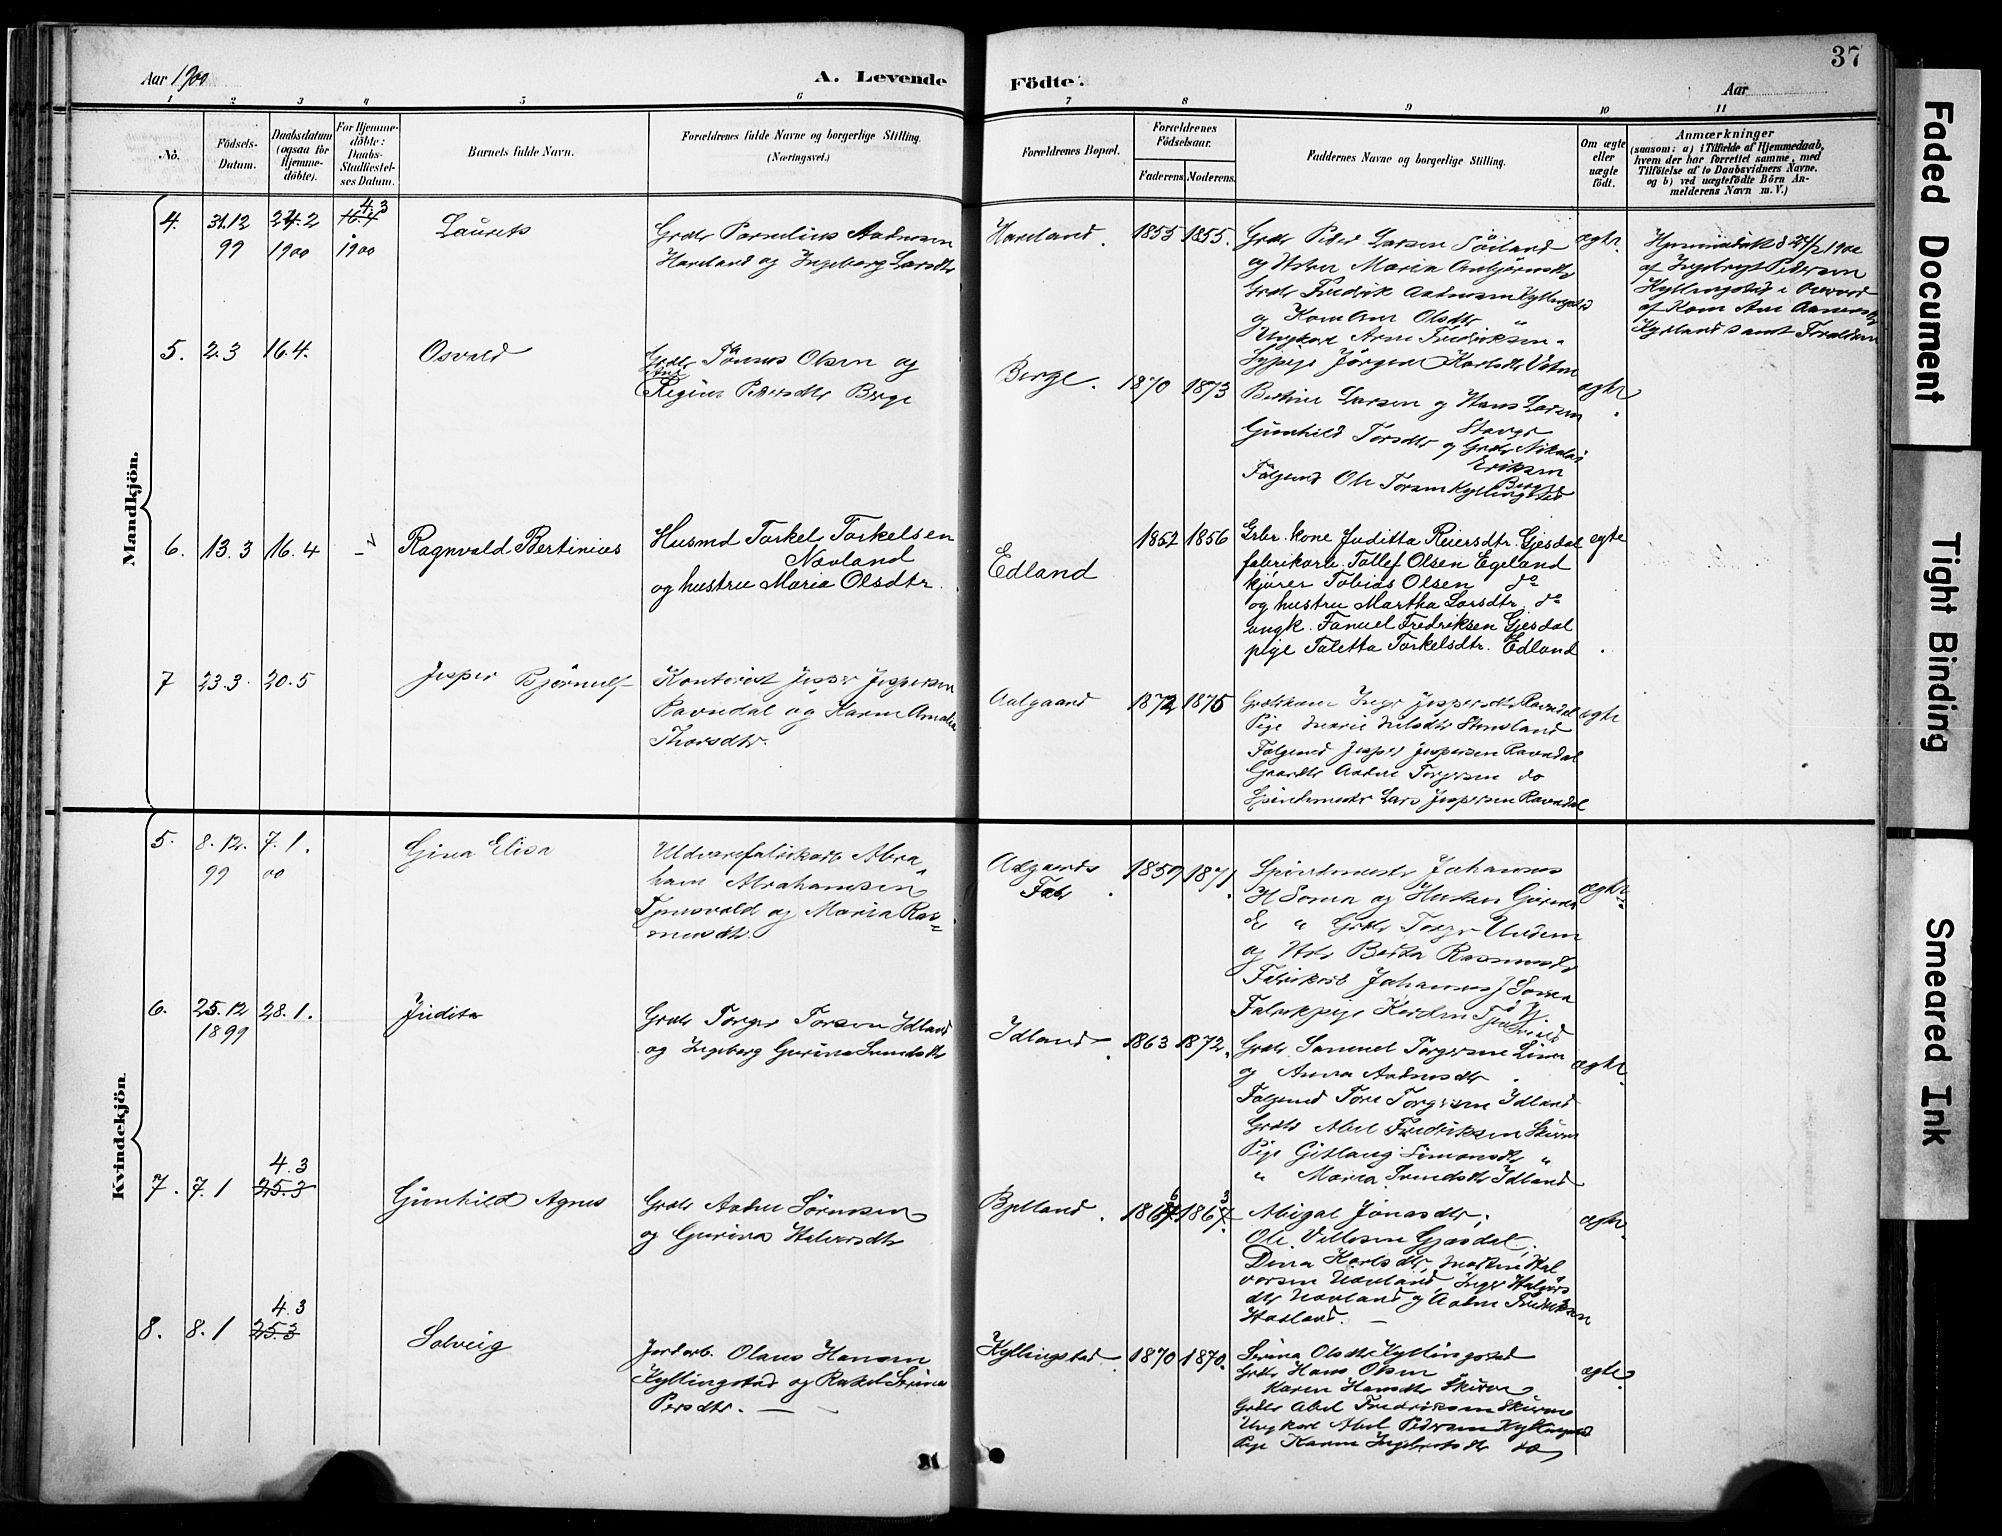 Aar 1900
A. Levende
Födte.
Aar
37
1 2 3 4 5 6 7 8 9 10 11
No.
Födsels-
Datum.
Daabsdatum
(ogsaa for
Hjemme-
döbte).
For Hjemme-
döbte:
Daabs-
Stadfæstel-
ses Datum.
Barnets fulde Navn.
Forældrenes fulde Navne og borgerlige Stilling.
(Næringsvei.)
Forældrenes Bopæl.
Forældrenes
Födselsaar.
Faderens. Moderens.
Faddernes Navne og borgerlige Stilling.
Om ægte
eller
uægte
födt.
Anmærkninger
(saasom: a) i Tilfælde af Hjemmedaab,
hvem der har forrettet samme, med
Tilföielse af to Daabsvidners Navne.
og b) ved uægtefödte Börn An-
melderens Navn m. V.)
Mandkjön.
4. 31.12 99
24.2 1900
4.3 16.4 1900
Laurets
Grdbr Aadnesen
Haveland og Ingeborg Larsdtr
Haveland. 1855 1855.
Grdbr Peder Larsen
og Maria
Grdbr Fredrik Aadnesen Kyllingstad
og Olsdtr "
Ungkarl Arne Fredriksen "
ægte.
24/2 1900
af Ingebregt Pedersen
Kyllingstad i Overvær
af
samt Forældrene
5. 2.3 16.4.
Osvald
Grdbr Tönnes Olsen og
Regine Pedersdtr Berge
Berge. 1870 1873
Bertine Larsen og Hans Larsen
Stavgr
Gunhild Torsdtr og Grdbr Nikolai
Eriksen
Berge
Fölgemd Ole Torsen Kyllingstad
ægte.
6. 13.3 16.4
Ragnvald Bertinius
Husmd Torkel Torkelsen
Navland
og hustru Maria Olsdtr.
Edland
1852 1856
Grbr. kone Juditta Reiersdtr. Gjesdal
fabrikarb. Tollef Olsen Egeland
kjører Tobias Olsen do
og hustru Martha Larsdtr. do
ungk. Fanuel Fredriksen Gjesdal
pige Taletta Torkelsdtr. Edland.
egte
7 23.3. 20.5
Jesper Bjørnulf
Kontorist Jesper Jespersen
Ravndal og Karen Amalia
Thorsdtr.
Aalgaard 1872 1875
Grdbrkone Inger Jespersdtr Ravndal
Pige Marie Nilsdtr
Fölgemd Jesper Jespersen Ravndal
Gaardbr Aadne Torgersen do
Spindemester Lars Jespersen Ravndal
ægte
Kvindekjön.
5. 8.12. 99
7.1. 00
Gina Elisa
Uldvarefabrikarb Abra-
ham Abrahamsen
og Maria Ras-
musdtr.
Aalgaards
Fab. 1859 1871.
Spindemester Johannes
og Hustru Gurina
" Grdbr Torger
og Htr Berta Rasmusdtr
Fabrikarb Johannes J
Fabrikpige
ægte.
6. 25.12 1899
28.1.
Judita
Grdbr Torger Torsen Idland
og Ingeborg Gurina Svendsdtr
Idland. 1863 1872.
Grdbr Samuel Torgersen Lima
og Anna Aadnesdtr.
Fölgemd Tore Torgersen Idland
Grdbr Abel Fredriksen Skurve
Pige Gitlaug Simonsdtr "
" Maria Svendsdtr Idland
ægte.
7. 7.1
4.3
25.3
Gunhild Agnes
Grdbr Aadne Sörensen
og Gurina Halvorsdtr
Bjelland.
Abigal Jonasdtr;
Ole Villesen Gjesdal;
Dina Karlsdtr, Morten Hal
vorsen Navland, Inger Halvors
dtr Navland og Aadne Fredriksen
Haaland. —
ægte.
8. 8.1
4.3
25.3
Solveig
Jordarb. Olaus Hansen
Kyllingstad og Rakel Serina
Persdtr. —
Kyllingstad. 1870 1870.
Serina Olsdtr Kyllingstad
Grdbr Hans Olsen
Karen Hansdtr Skurve
Grdbr Abel Fredriksen Skurve
Ungkarl Abel Pedersen Kyllingstad
Pige Karen Ingebretsdtr do
ægte.
Faded Document
Tight Binding
Smeared Ink